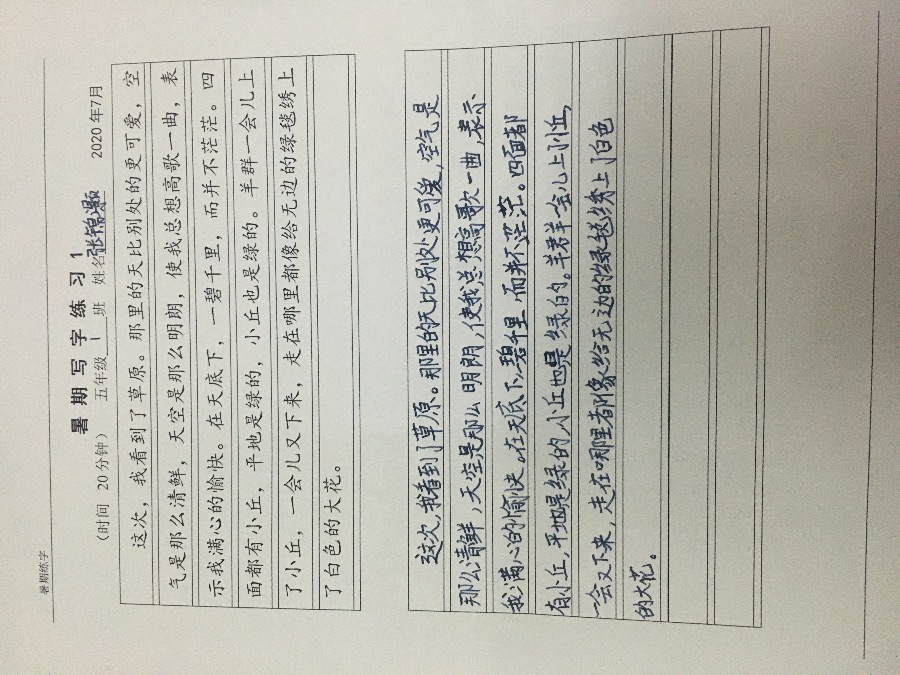 暑期练字
暑期写字练习1
（时间 20分钟） 五年级 1 班 姓名 张锦灏 2020年7月
这次，我看到了草原。那里的天比别处的更可爱，空
气是那么清鲜，天空是那么明朗，使我总想高歌一曲，表
示我满心的愉快。在天底下，一碧千里，而并不茫茫。四
面都有小丘，平地是绿的，小丘也是绿的。羊群一会儿上
了小丘，一会儿又下来，走在哪里都像给无边的绿毯绣上
了白色的大花。
这次，我看到了草原。那里的天比别处更可爱，空气是
那么清鲜，天空是那么明朗，使我总想高歌一曲，表示
我满心的愉快。在天底下，一碧千里，而并不茫茫。四面都
有小丘，平地是绿的，小丘也是绿的。羊群一会儿上了小丘，
一会又下来，走在哪里都像给无边的绿毯绣上了白色
的大花。